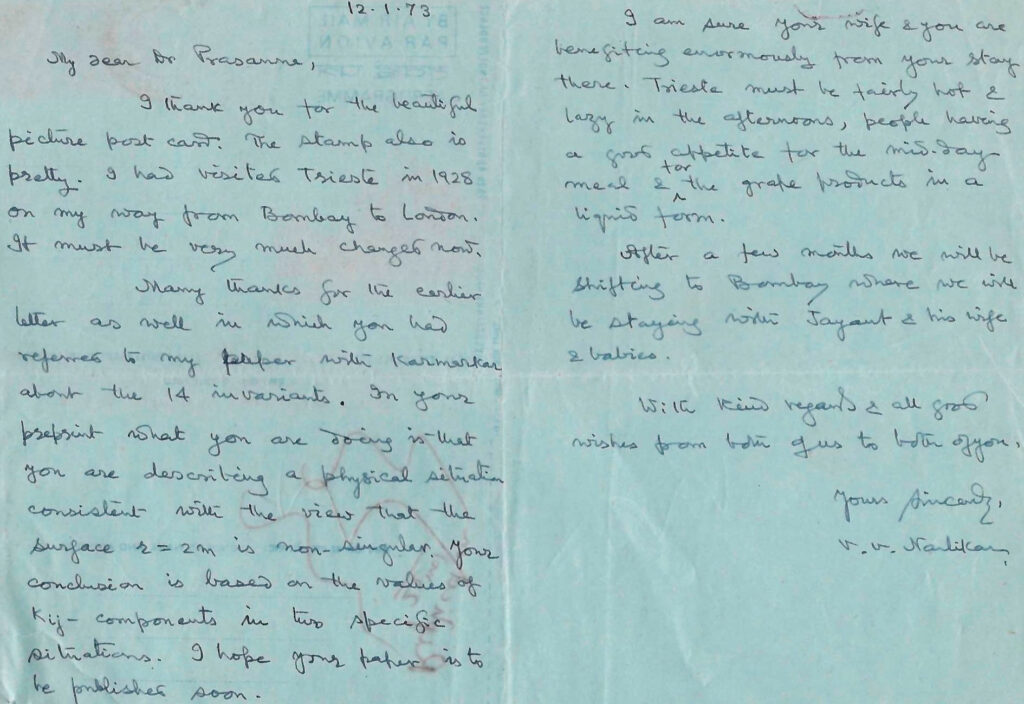 12.1.73
My dear Dr Prasanne,
I thank you for the beautiful
picture post card. The stamp also is
pretty. I had visited Trieste in 1928
on my way from Bombay to London.
It must be very much changed now.
Many thanks for the earlier
letter as well in which you had
referred to my paper with Karmarkar
about the 14 invariants. In your
preprint what you are doing is that
you are describing a physical situation
consistent with the view that the
surface r = 2m is non-singular. Your
conclusion is based on the values of
Kij- components in two specific
situations. I hope your paper is to
be published soon.
I am sure your wife & you are
benefiting enormously from your stay
there. Trieste must be fairly hot &
lazy in the afternoons, people having
a good appetite for the mid-day
meal & for the grape products in a
liquid form.
After a few months we will be
shifting to Bombay where we will
be staying with Jayant & his wife
& babies.
With kind regards & all good
wishes from both of us to both of you.
Yours Sincerely,
V. V. Narlikar
BY AIR MAIL
PAR AVION